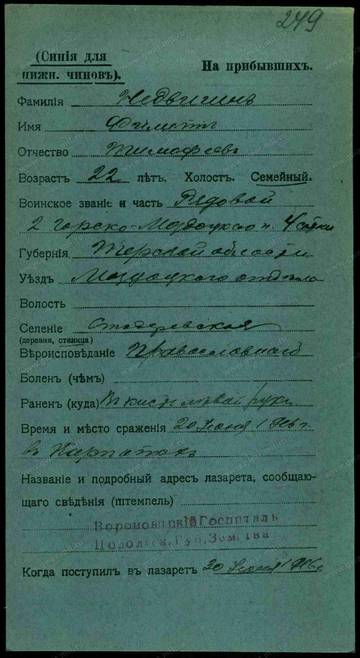 249
(Синія для
нижн. чиновъ).
На прибывшихъ.
Фамилія Недвигинъ
Имя
Отчество Тимофеевъ
Возрастъ 22 лѣтъ. Холостъ. Семейный.
Воинское званіе и часть Рядовой
2 Горско-Моздокскаго п. 4 сотни
Губернія Терской области
Уѣздъ Моздокскаго отдѣла
Волость
Селеніе
(деревня, станица)
Вѣроисповѣданіе Православнаго
Боленъ (чѣмъ)
Раненъ (куда) В кисть лѣвой руки
Время и мѣсто сраженія 20 Іюня 1916 г.
в Карпатахъ
Названіе и подробный адресъ лазарета, сообщаю-
щаго свѣдѣнія (штемпель)
Госпиталь
Губ. Земства
Когда поступилъ въ лазаретъ 30 Іюня 1916 г